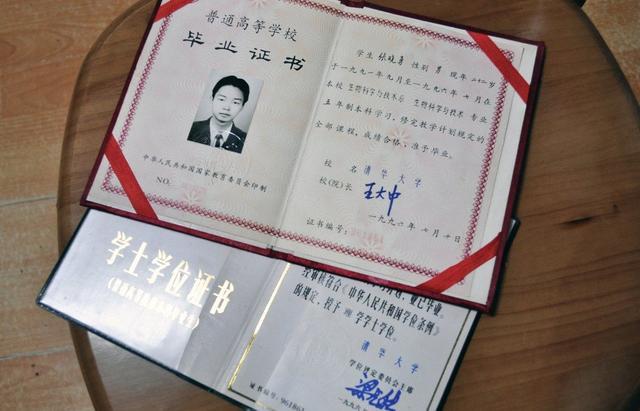 普通高等学校
毕业证书
中华人民共和国国家教育委员会印制
NO.
学生 张晓勇 性别 男 现年 二十二 岁
于一九九一年九月至一九九六年七月在
本校 生物科学与技术系 生物科学与技术 专业
五年制本科学习,修完教学计划规定的
全部课程,成绩合格,准予毕业。
校 名 清华大学
校(院)长 王大中
一九九六年七月十日
证书编号:
学士学位证书
业已毕业。
经审核符合《中华人民共和国学位条例》
的规定,授予 理 学学士学位。
清华大学
学位评定委员会主席
一九九六年
证书编号